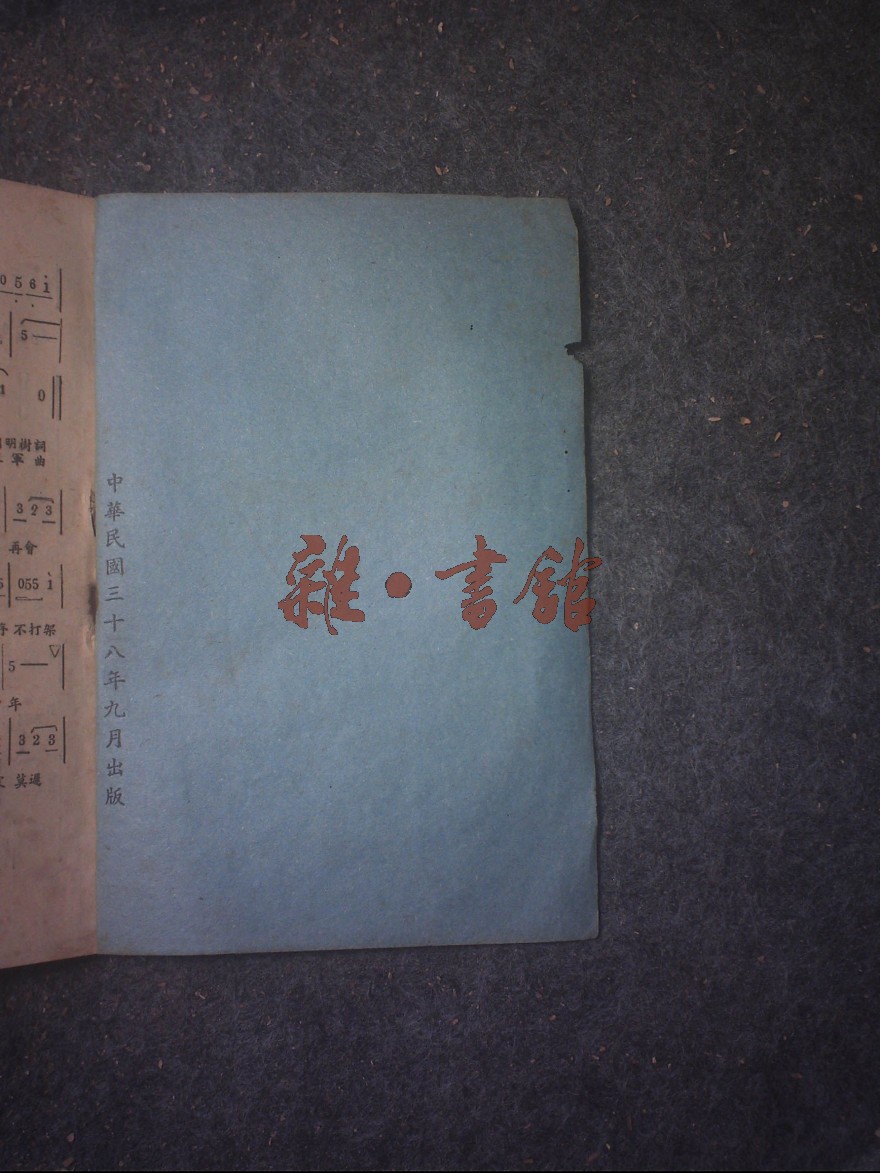 0 5 6 1
5 —
1 0
明樹詞
軍 曲
3 2 3
再會
055 1
不打架
5 —
年
3 2 3
莫遲
中華民國三十八年九月出版
雜·書館